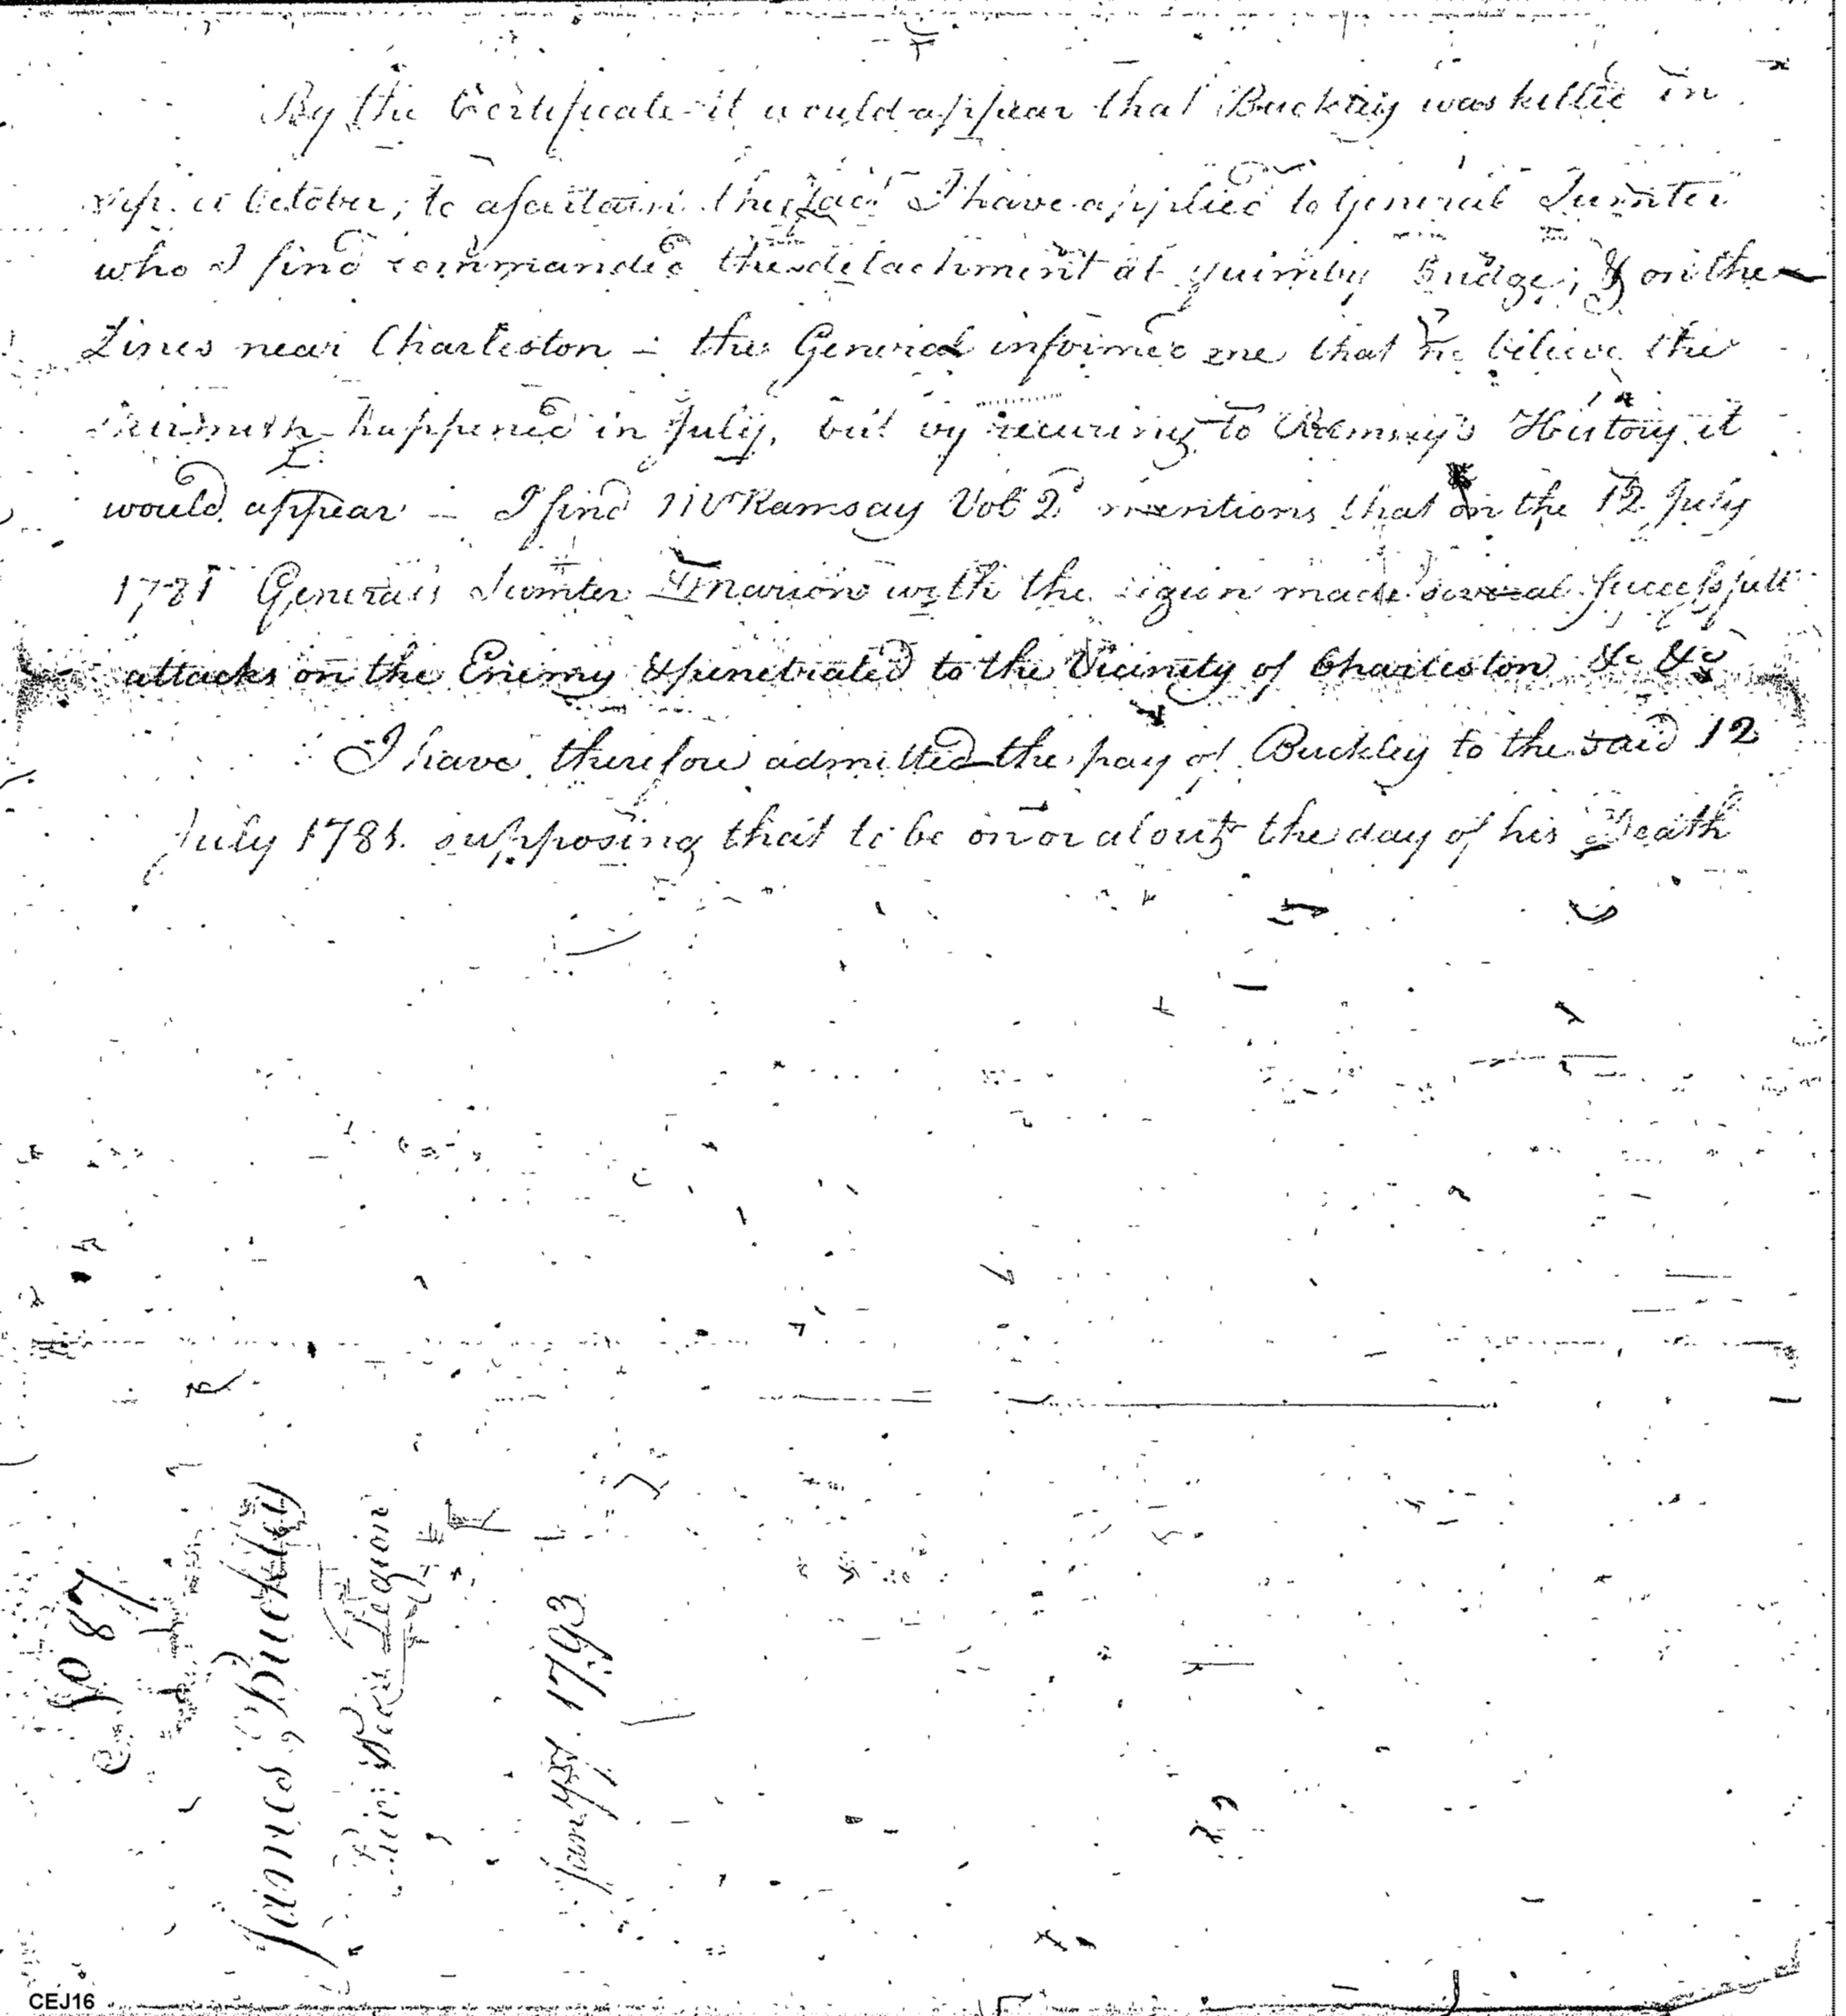 By the Certificate it would appear that Buckley was killed in
Sep. or October, to asertain the fact I have applied to General Sumter
who I find commanded the detachment at Quimby Bridge, & on the
Lines near Charleston – the General informed me that he believe the
Skirmish happened in July, but by recuring to Ramsey's History it
would appear – I find Mr Ramsay Vol 2d mentions that on the 12 July
1781 Generals Sumter & Marion with the Legion made several successfull
attacks on the Enemy & penetrated to the Vicinity of Charleston &c &c
I have therefore admitted the pay of Buckley to the said 12
July 1781. supposing that to be on or about the day of his Death
No 87
James Buckley
Lees Legion
Jany 1793
CEJ16